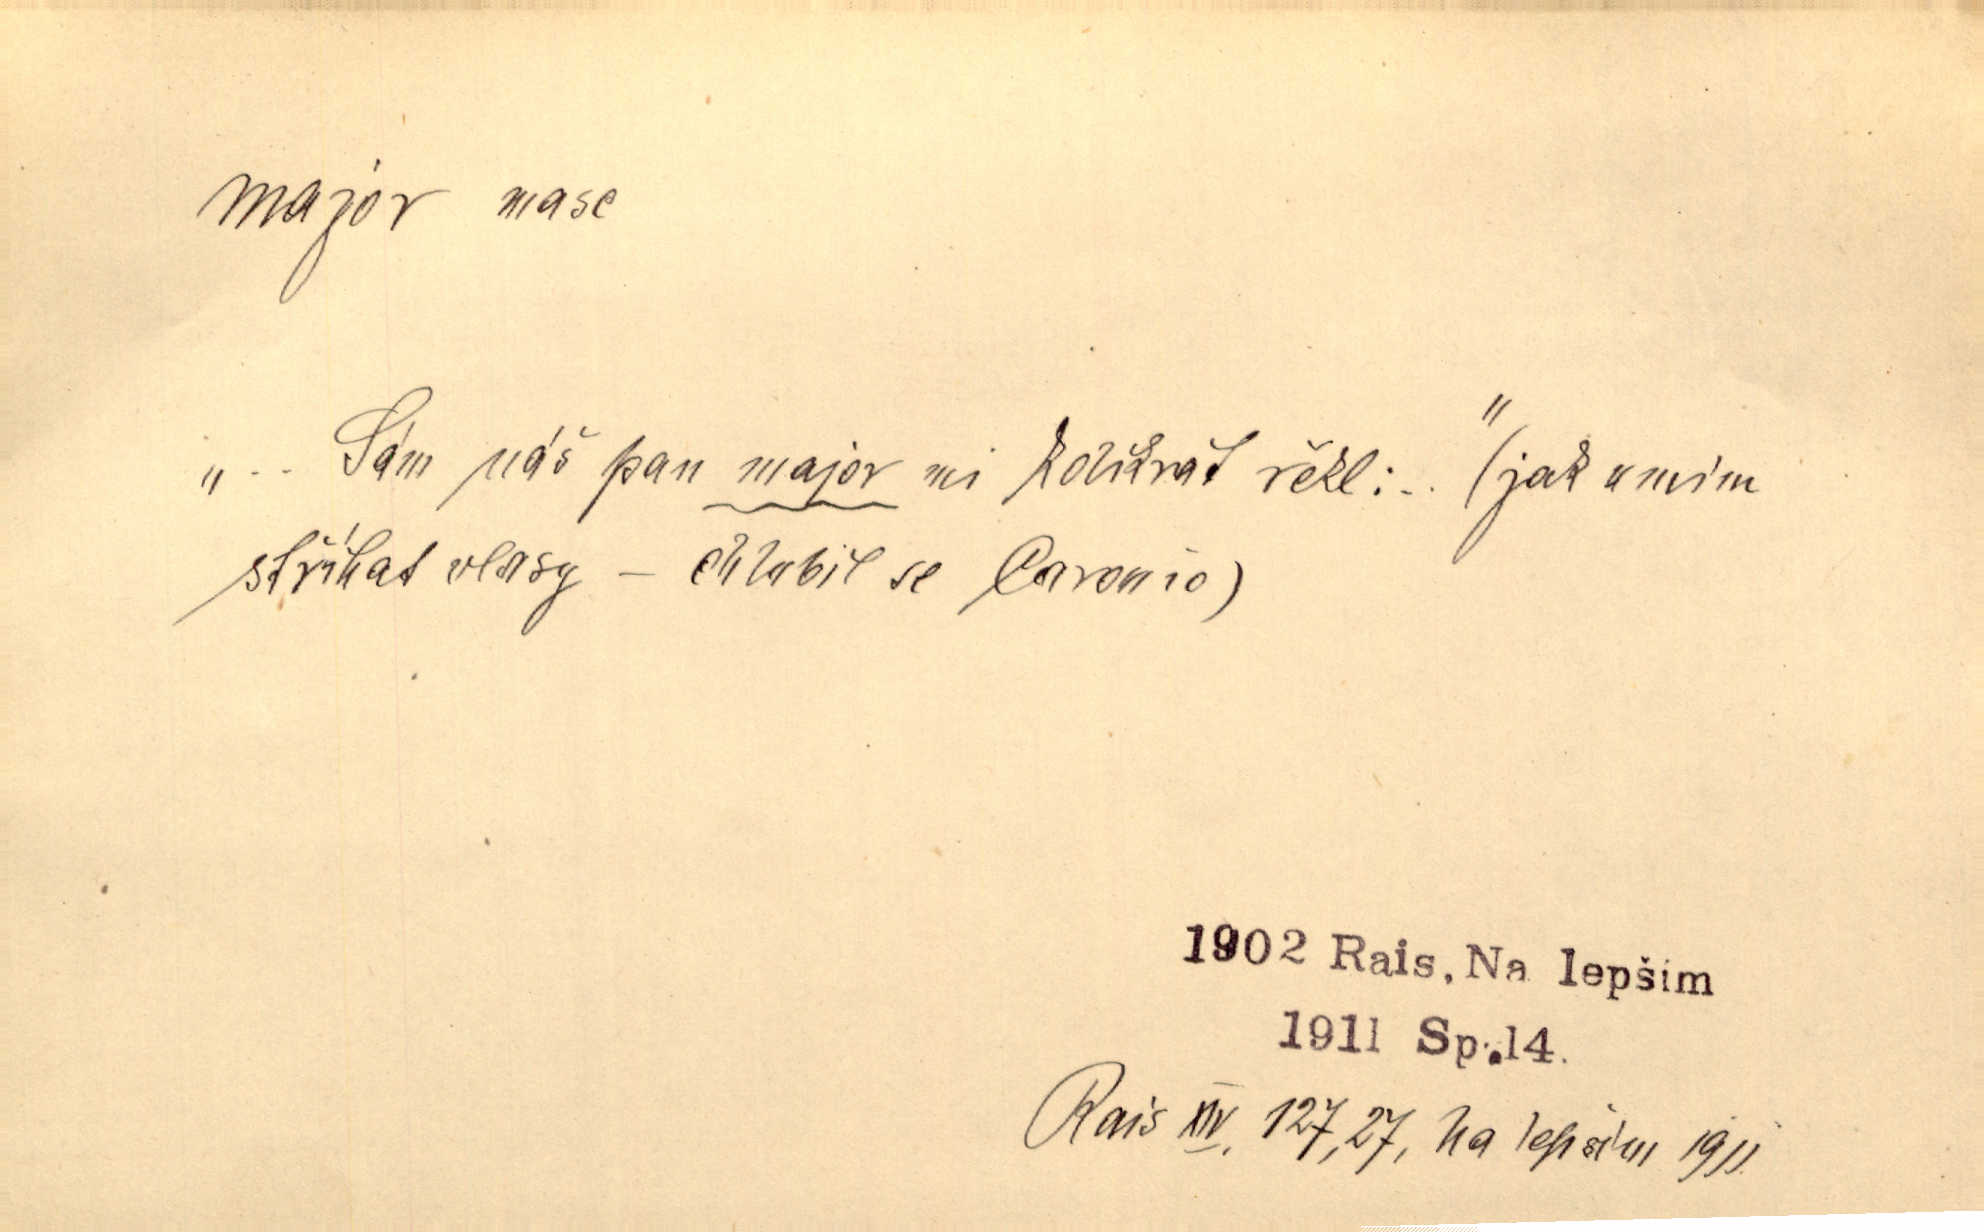 major masc
„ .. Sám náš pan major mi kolikrát řekl: .." (jak umím
stříhat vlasy – chlubil se Caronio)
1902 Rais, Na lepším
1911 Sp. 14.
Rais XIV. 127,27, Na lepším 1911